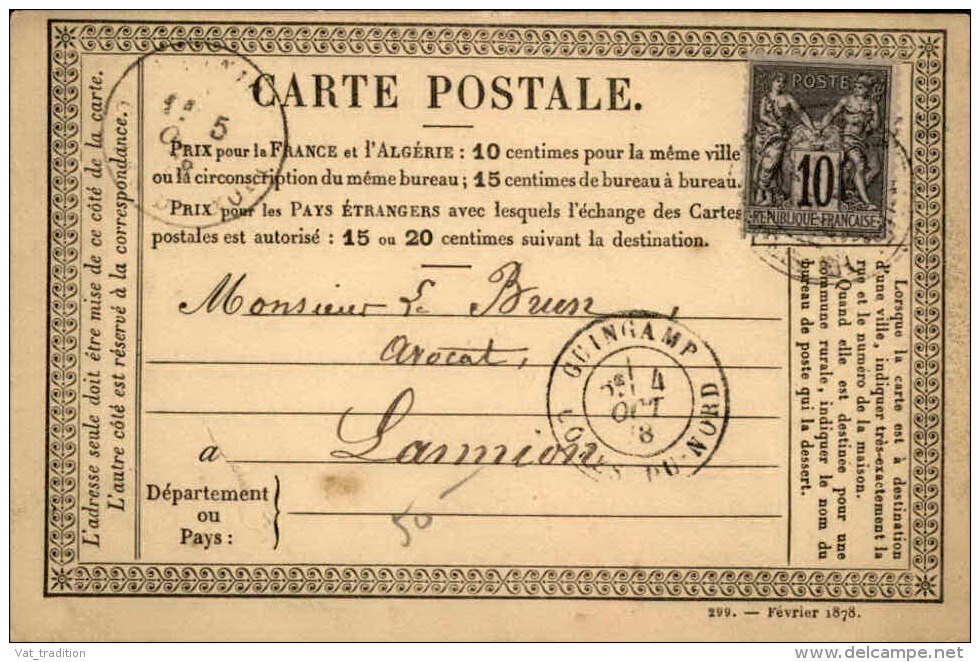 CARTE POSTALE.
PRIX pour la FRANCE et l'ALGÉRIE : 10 centimes pour la même ville
ou la circonscription du même bureau ; 15 centimes de bureau à bureau.
PRIX pour les PAYS ÉTRANGERS avec lesquels l'échange des Cartes
postales est autorisé : 15 ou 20 centimes suivant la destination.
POSTE
10
REPUBLIQUE FRANCAISE
L'adresse seule doit être mise de ce côté de la carte.
L'autre côté est réservé à la correspondance.
5
Monsieur Le Brun,
avocat,
a Lannion
GUINGAMP
4
OCT
78
CÔTES-DU-NORD
Département
ou
Pays :
50
Lorsque la carte est à destination
d'une ville, indiquer très-exactement la
rue et le numéro de la maison.
Quand elle est destinée pour une
commune rurale, indiquer le nom du
bureau de poste qui la dessert.
299. — Février 1878.
Vat_tradition
http://www.delcampe.net